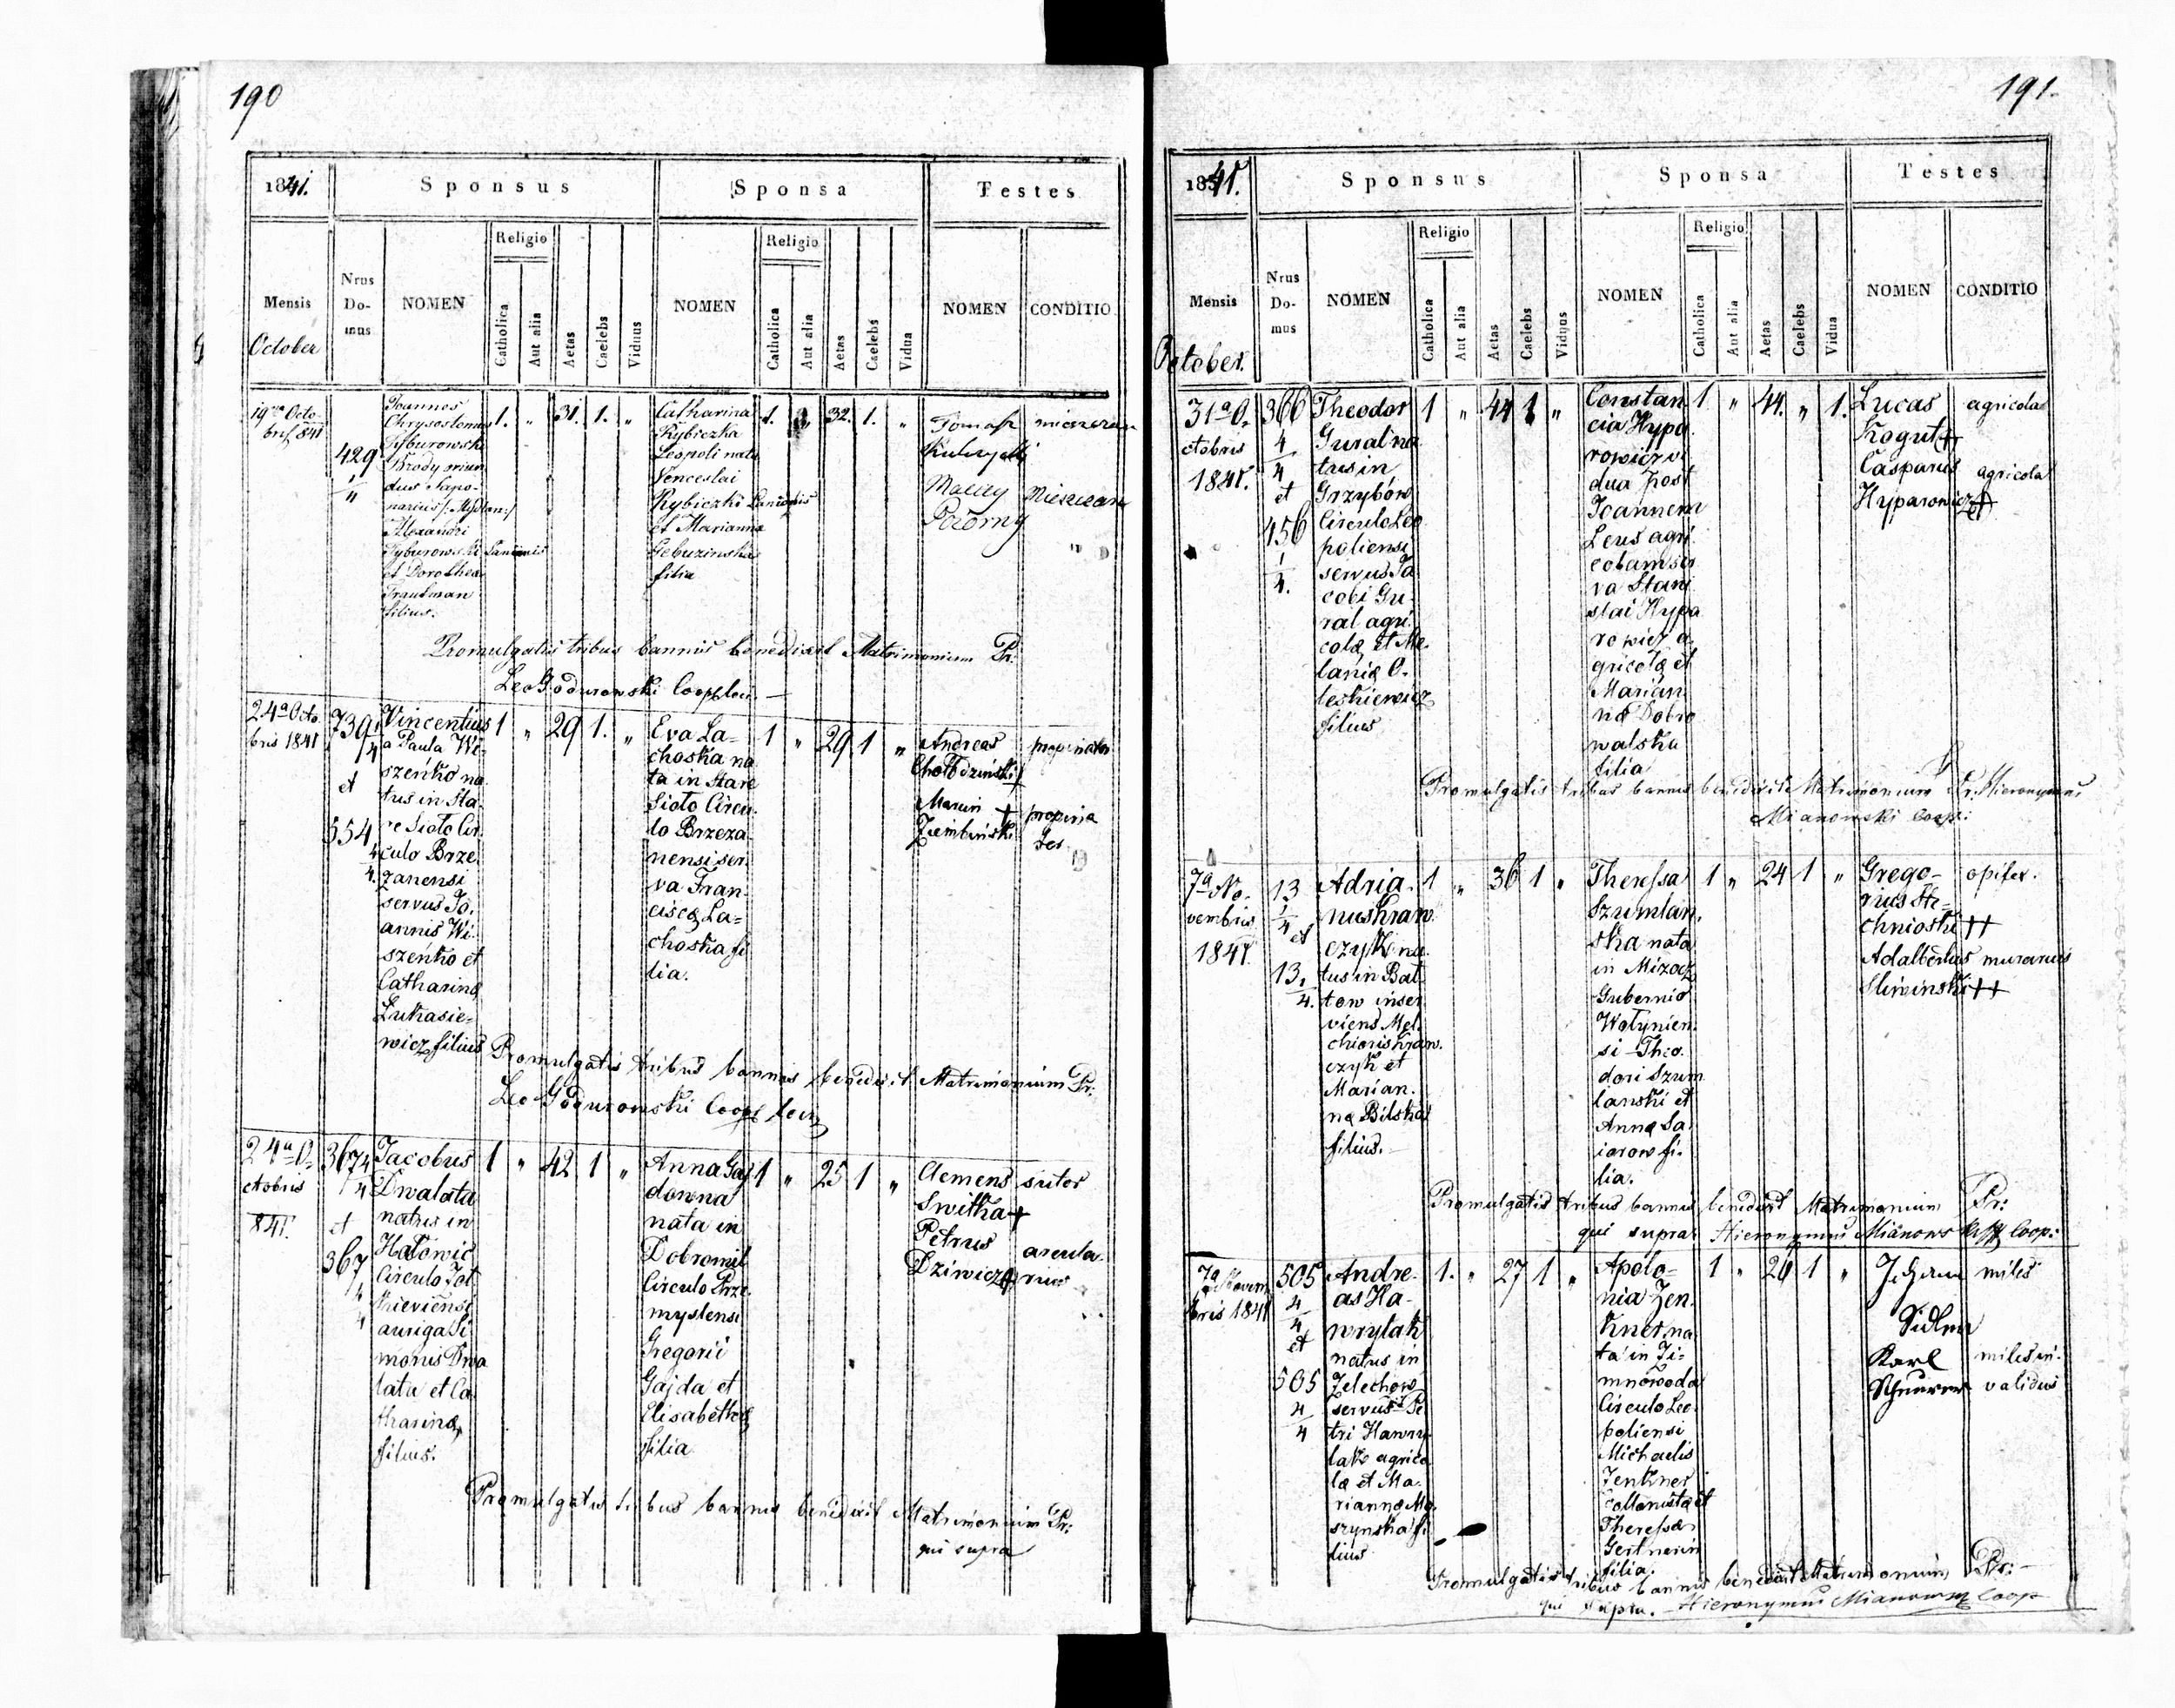 190
1841.
Sponsus
Sponsa
Testes
Mensis
October
Nrus
Do-
mus
NOMEN
Religio
Catholica
Aut alia
Aetas
Caelebs
Viduus
NOMEN
Religio
Catholica
Aut alia
Aetas
Caelebs
Vidua
NOMEN
CONDITIO
19na Octo-
bris 841
429
Joannes
Chrysostomus
Brody oriun
dus Sapo-
narius
Alexandri
Tyburowski
et Dorothea
Trautman
filius.
1. " 31. 1. "
Catharina
Rybiczka
Leopoli nata
Venceslai
Rybiczki Lanionis
et Marianna
filia
1. 32. 1. "
Tomasz
Maciej
Pokorny
Promulgatis tribus bannis benedixit Matrimonium Pr.
Leo Godurowski Coop loci.
24a Octo
bris 1841
739
4
et
554
4
4.
Vincentius
a Paula Wi-
szeńko na
tus in Sta-
re Sioło Cir
culo Brze
zanensi
servus Jo.
annis Wi-
szeńko et
Catharina
Łukasie-
wicz filius
1 " 29 1. "
Eva La-
choska na
ta in Stare
Sioło Circu
lo Brzeza-
nensi ser
va Fran-
cisca La-
choska fi
lia.
1 " 29 1 "
Andreas
propinator
Marcin +
Ziembiński
propina
tor
Promulgatis tribus bannis benedixit Matrimonium Pr:
Leo Godurowski Coop loci
24a O-
ctobris
841.
367
4
et
367
4
4
Jacobus
Dwalata
natus in
Circulo Żoł
kieviensi
auriga Si
monis Dwa
lata et Ca
tharina
filius.
1 " 42 1 "
Anna Gaj
downa
nata in
Dobromil
Circulo Prze
myslensi
Gregorii
Gajda et
Elisabetha
filia
1 " 25 1 "
Clemens
Switka +
sutor
Petrus
Dziwicz +
arcula-
rius
Promulgatis tribus bannis benedixit Matrimonium Pr:
qui supra
191.
1841.
Sponsus
Sponsa
Testes
Mensis
October.
Nrus
Do-
mus
NOMEN
Religio
Catholica
Aut alia
Aetas
Caelebs
Viduus
NOMEN
Religio
Catholica
Aut alia
Aetas
Caelebs
Vidua
NOMEN
CONDITIO
31a O-
ctobris
1841.
366
4
4
et
456
1
4.
Theodor
Gural na
tus in
Grzybów
Circulo Leo
poliensi
servus Ja
cobi Gu-
ral agri
cola et Me-
lania O-
leskiewicz
filius
1 " 44 1 "
Constan
cia Hypa
rowicz vi
dua post
Joannem
Leus agri
colam ser
va Stani
slai Hypa
rowicz a
gricola et
Marian
na Dobro
walska
filia
1. " 44. " 1.
Lucas
Kogut +
agricola
Casparus
Hyparowicz +
agricola
Promulgatis tribus bannis benedixit Matrimonium Pr. Hieronymus
Mianowski Coop:
7a No-
vembris
1841.
13
1
4
et
13
4.
Adria-
nus Kraw-
czyk na
tus in Bat
tow inser
viens Mel-
chioris Kraw-
czyk et
Marian-
na Bilska
filius.
1 " 36 1 "
Theressa
Szumlan-
ska nata
in Mizocz
Gubernio
Wołynien
si Theo-
dori Szum
lanski et
Anna Sa
iarow fi-
lia.
1 " 24 1 "
Grego-
rius Ste-
chnioski ++
opifex.
Adalbertus
Sliwinski ++
murarius
Promulgatis tribus bannis benedixit Matrimonium Pr:
qui supra Hieronymus Mianowski Coop:
7a Novem
bris 1841
505
4
4
et
505
4
4
Andre-
as Ha-
wrylak
natus in
Zelechow
servus Pe
tri Hawry
lak agrico
la et Ma-
rianna Mo-
szynska fi
lius
1. " 27 1 "
Apolo-
nia Zen
kner na
ta in Zi-
mnowoda
Circulo Leo-
poliensi
Michaelis
Zenkner
Collonista et
Theressa
Gertnerin
filia.
1 " 24 1 "
Johann
Sidler
miles
Karl
miles in-
validus
Promulgatis tribus bannis benedixit Matrimonium Pr:
qui supra. Hieronymus Mianowski Coop